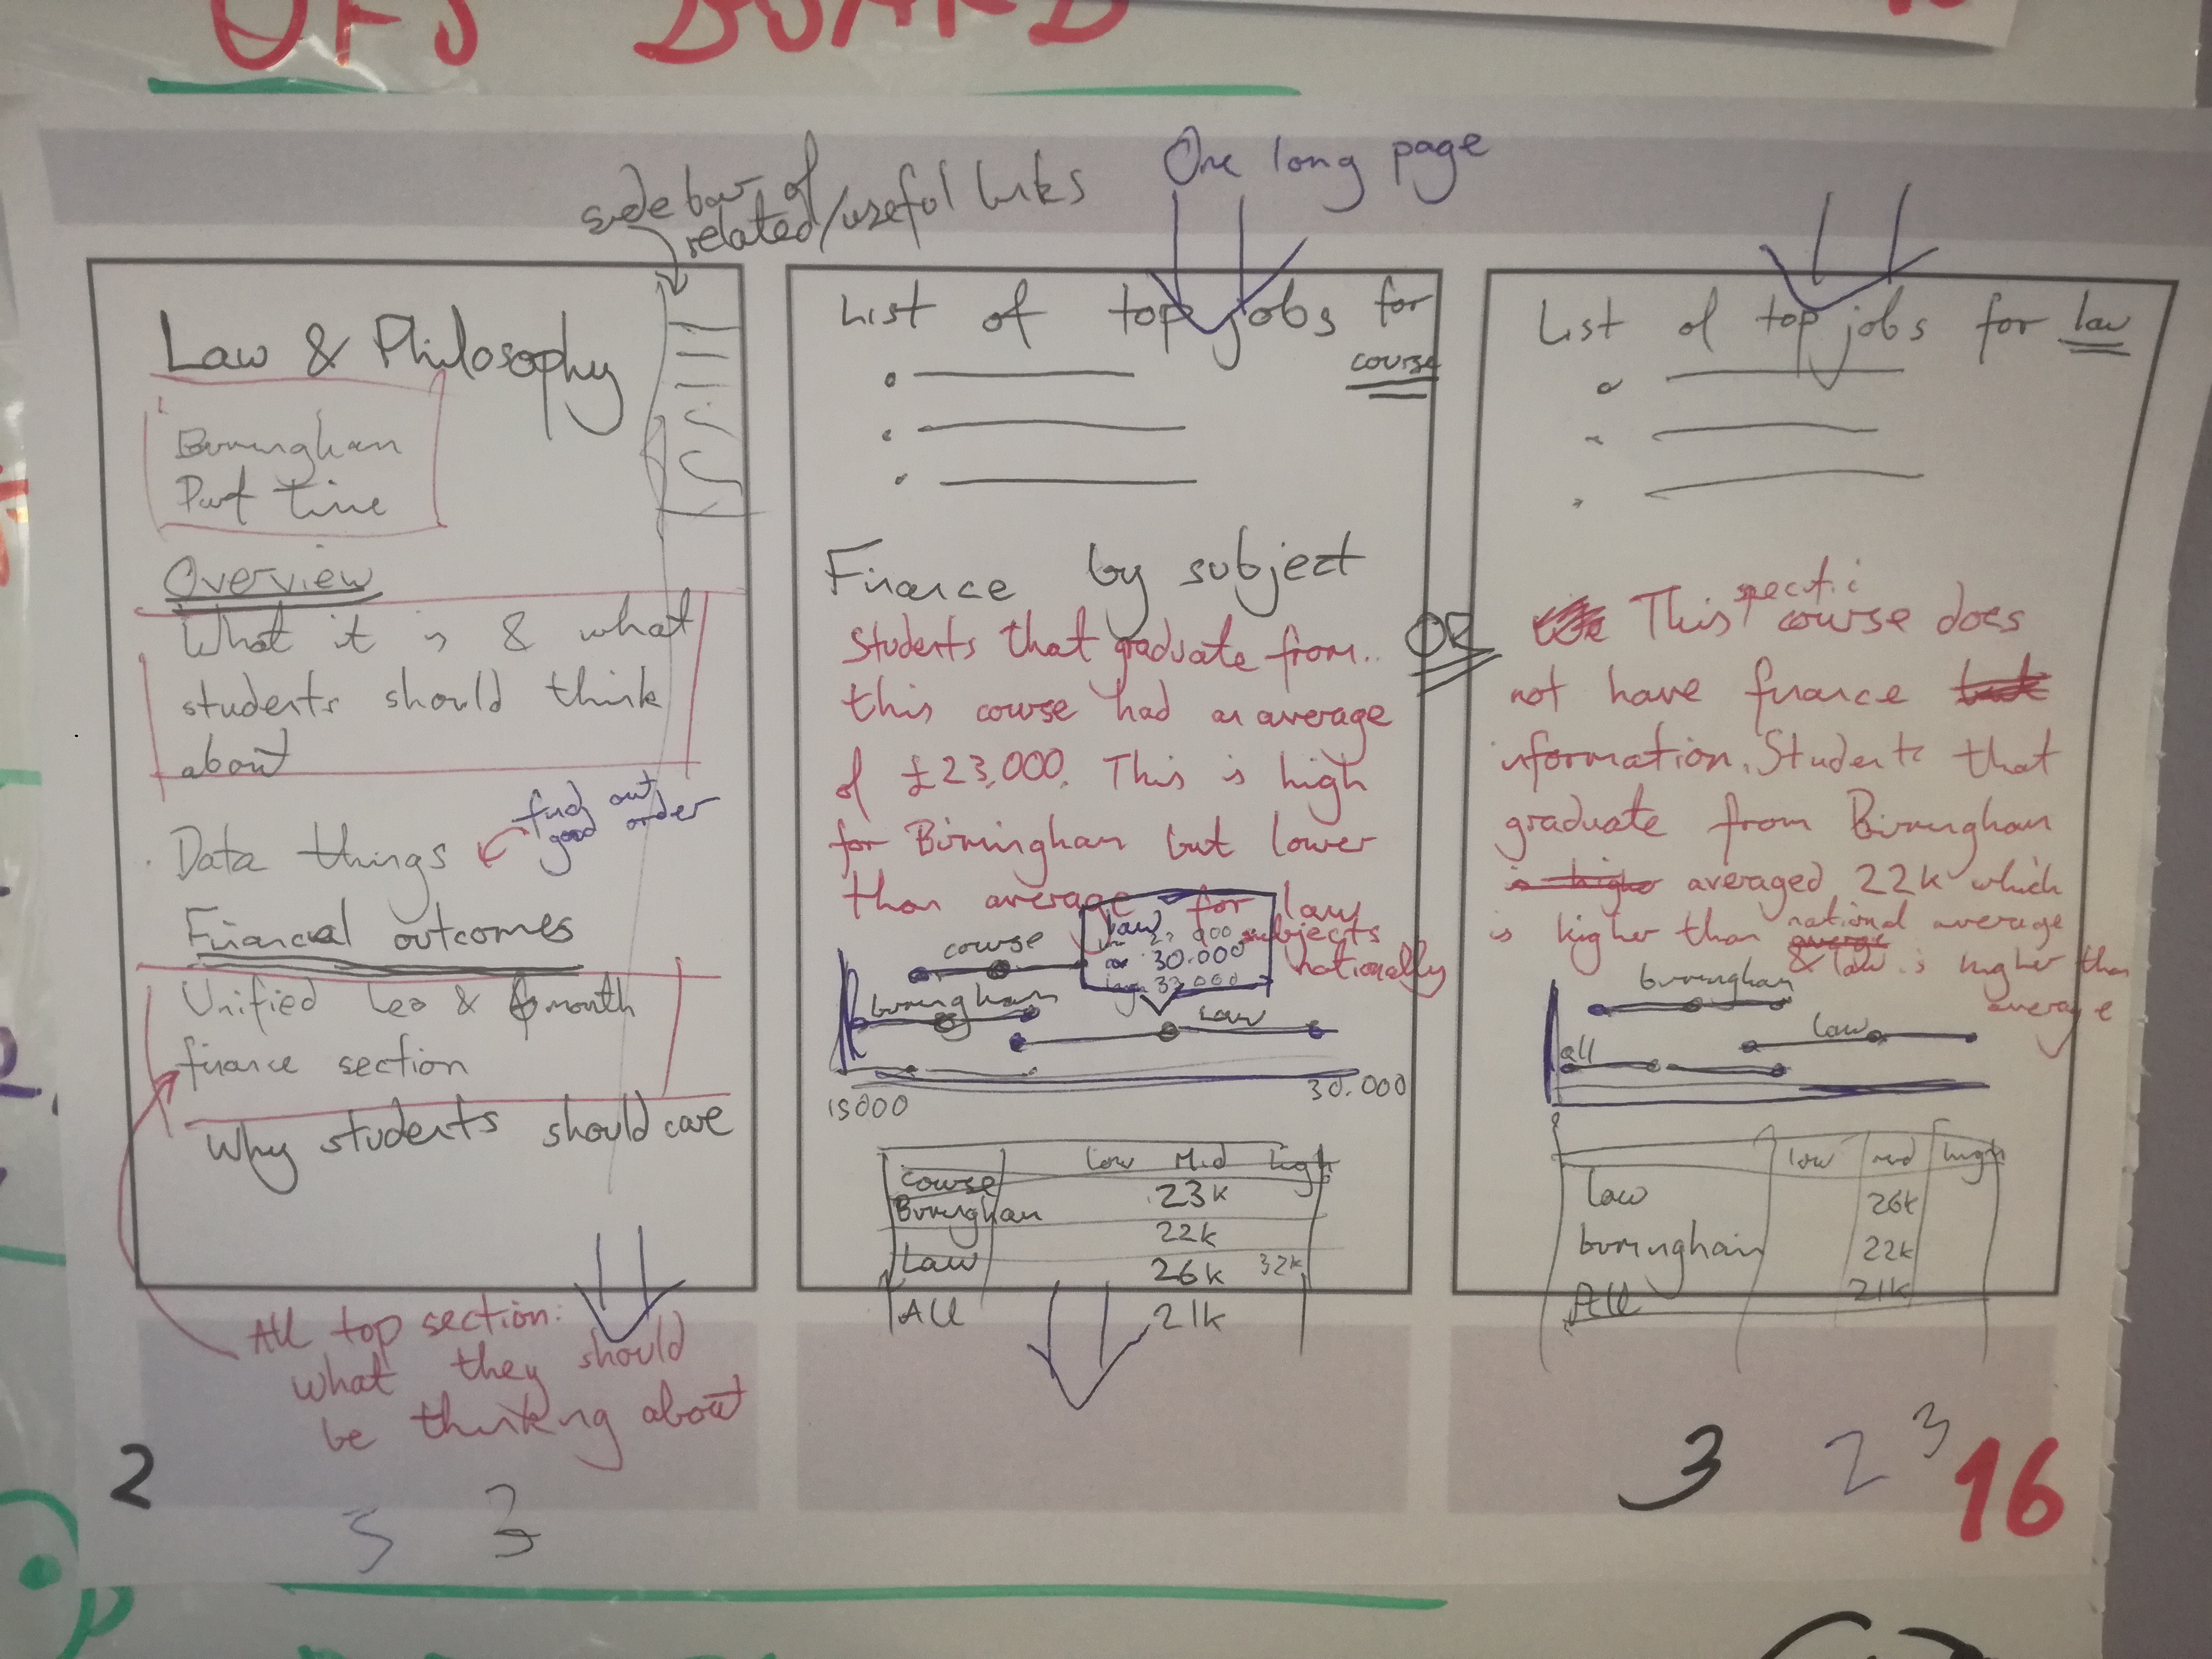 OFS BOARD
sidebar of
related/useful links
One long page
Law & Philosophy
Birmingham
Part time
Overview
What it is & what
students should think
about
Data things
find out
good order
Financial outcomes
Unified Leo & 6 month
finance section
Why students should care
All top section:
what they should
be thinking about
2
3
List of top jobs for
course
Finance by subject
Students that graduate from..
this course had an average
of £23,000. This is high
for Birmingham but lower
than average for law
subjects
nationally
law
30.000
course
birmingham
law
15000
30.000
low Mid high
Course 23k
Birmingham 22k
Law 26k 32k
All 21k
OR
List of top jobs for law
This specific course does
not have finance
information. Students that
graduate from Birmingham
is higher averaged 22k which
is higher than average national average
& law is higher than
average
birmingham
law
all
low med high
law 26k
birmingham 22k
All 21k
3 2 3 16